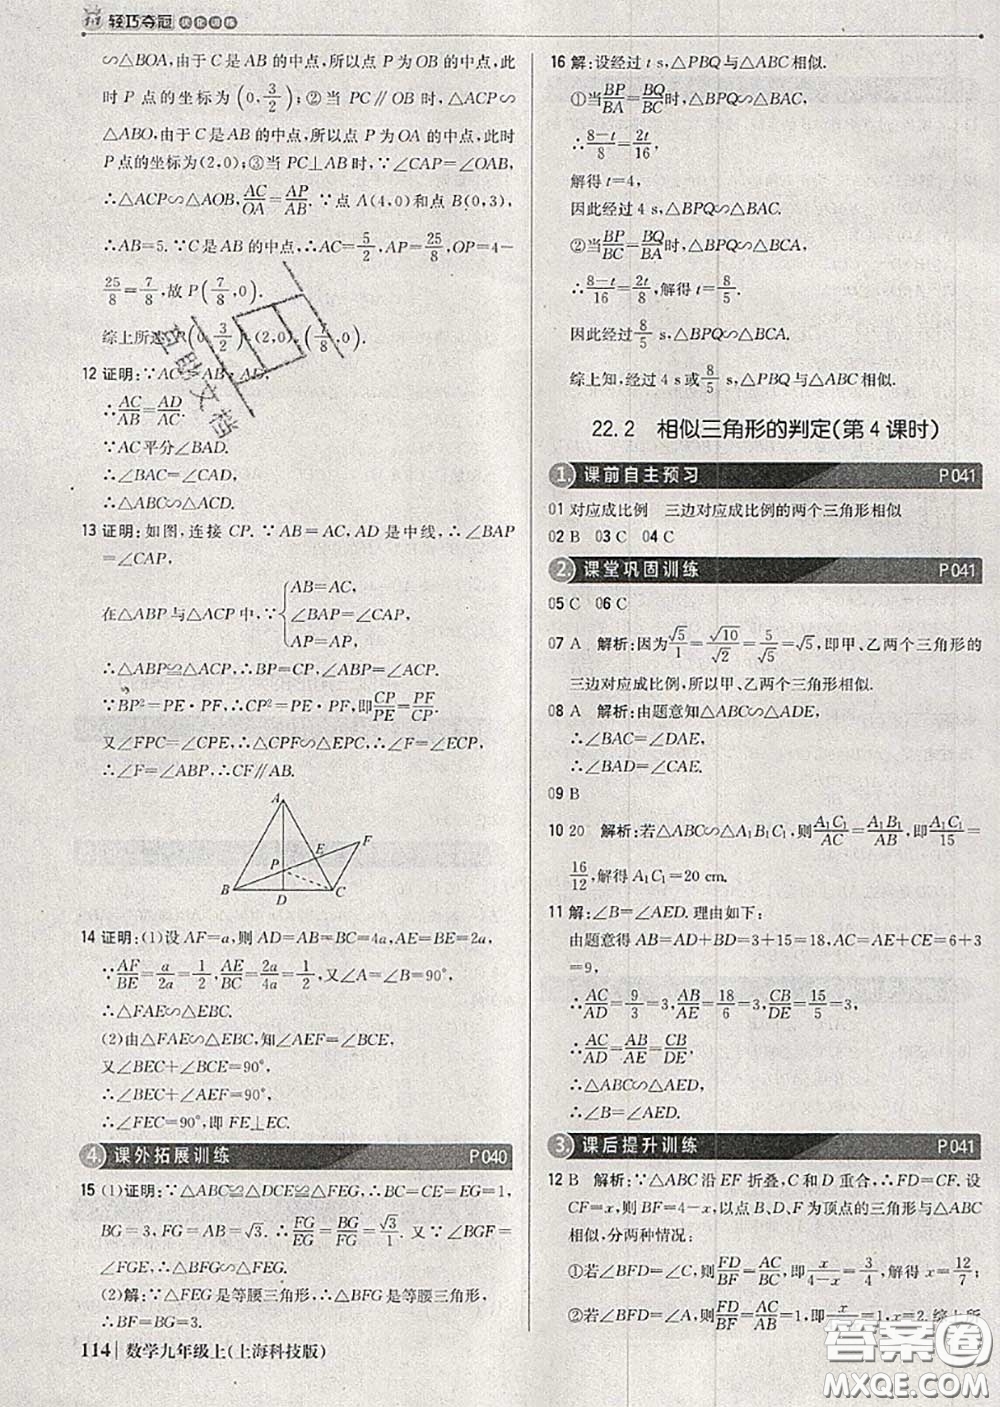 1+1 轻巧夺冠 优化训练
∽△BOA,由于 C 是 AB 的中点,所以点 P 为 OB 的中点,此
时 P 点的坐标为(0,3/2);②当 PC∥OB 时,△ACP∽
△ABO,由于 C 是 AB 的中点,所以点 P 为 OA 的中点,此时
P 点的坐标为(2,0);③当 PC⊥AB 时,∵∠CAP=∠OAB,
∴△ACP∽△AOB,AC/OA=AP/AB.∵点 A(4,0)和点 B(0,3),
∴AB=5.∵C 是 AB 的中点,∴AC=5/2,AP=25/8,OP=4-
25/8=7/8,故 P(7/8,0).
综上所述 P(0,3/2),(2,0),(7/8,0).
12 证明:∵AC²=AB·AD,
∴AC/AB=AD/AC.
∵AC平分∠BAD,
∴∠BAC=∠CAD,
∴△ABC∽△ACD.
13 证明:如图,连接 CP.∵AB=AC,AD 是中线,∴∠BAP
=∠CAP,
在△ABP与△ACP中,∵{AB=AC,
∠BAP=∠CAP,
AP=AP,
∴△ABP≌△ACP,∴BP=CP,∠ABP=∠ACP.
∵BP²=PE·PF,∴CP²=PE·PF,即CP/PE=PF/CP.
又∠FPC=∠CPE,∴△CPF∽△EPC,∴∠F=∠ECP,
∴∠F=∠ABP,∴CF∥AB.
A
F
E
P
B D C
14 证明:(1)设 AF=a,则 AD=AB=BC=4a,AE=BE=2a,
∵AF/BE=a/2a=1/2,AE/BC=2a/4a=1/2,又∠A=∠B=90°,
∴△FAE∽△EBC.
(2)由△FAE∽△EBC,知∠AEF=∠BCE,
又∠BEC+∠BCE=90°,
∴∠AEF+∠BEC=90°,
∴∠FEC=90°,即 FE⊥EC.
4. 课外拓展训练 P040
15 (1)证明:∵△ABC≌△DCE≌△FEG,∴BC=CE=EG=1,
BG=3,FG=AB=√3.∴FG/EG=BG/FG=√3/1.又∠BGF=
∠FGE,∴△BFG∽△FEG.
(2)解:∵△FEG是等腰三角形,∴△BFG是等腰三角形,
∴BF=BG=3.
114 数学九年级上(上海科技版)
16 解:设经过 t s,△PBQ与△ABC相似.
①当BP/BA=BQ/BC时,△BPQ∽△BAC,
∴(8-t)/8=2t/16,
解得 t=4,
因此经过 4 s,△BPQ∽△BAC.
②当BP/BC=BQ/BA时,△BPQ∽△BCA,
∴(8-t)/16=2t/8,解得 t=8/5.
因此经过8/5 s,△BPQ∽△BCA.
综上知,经过 4 s或8/5 s,△PBQ与△ABC相似.
22.2 相似三角形的判定(第 4 课时)
1. 课前自主预习 P041
01 对应成比例 三边对应成比例的两个三角形相似
02 B 03 C 04 C
2. 课堂巩固训练 P041
05 C 06 C
07 A 解析:因为√5/1=√10/√2=5/√5=√5,即甲、乙两个三角形的
三边对应成比例,所以甲、乙两个三角形相似.
08 A 解析:由题意知△ABC∽△ADE,
∴∠BAC=∠DAE,
∴∠BAD=∠CAE.
09 B
10 20 解析:若△ABC∽△A₁B₁C₁,则A₁C₁/AC=A₁B₁/AB,即A₁C₁/15=
16/12,解得 A₁C₁=20 cm.
11 解:∠B=∠AED.理由如下:
由题意得 AB=AD+BD=3+15=18,AC=AE+CE=6+3
=9,
∴AC/AD=9/3=3,AB/AE=18/6=3,CB/DE=15/5=3,
∴AC/AD=AB/AE=CB/DE,
∴△ABC∽△AED,
∴∠B=∠AED.
3. 课后提升训练 P041
12 B 解析:∵△ABC 沿 EF 折叠,C 和 D 重合,∴FD=CF.设
CF=x,则 BF=4-x,以点 B、D、F 为顶点的三角形与△ABC
相似,分两种情况:
①若∠BFD=∠C,则FD/BF=AC/BC,即x/(4-x)=3/4,解得 x=12/7;
②若∠BFD=∠A,则FD/BF=AC/AB=1,即x/(4-x)=1,x=2.综上所
答案圈
MXQE.COM